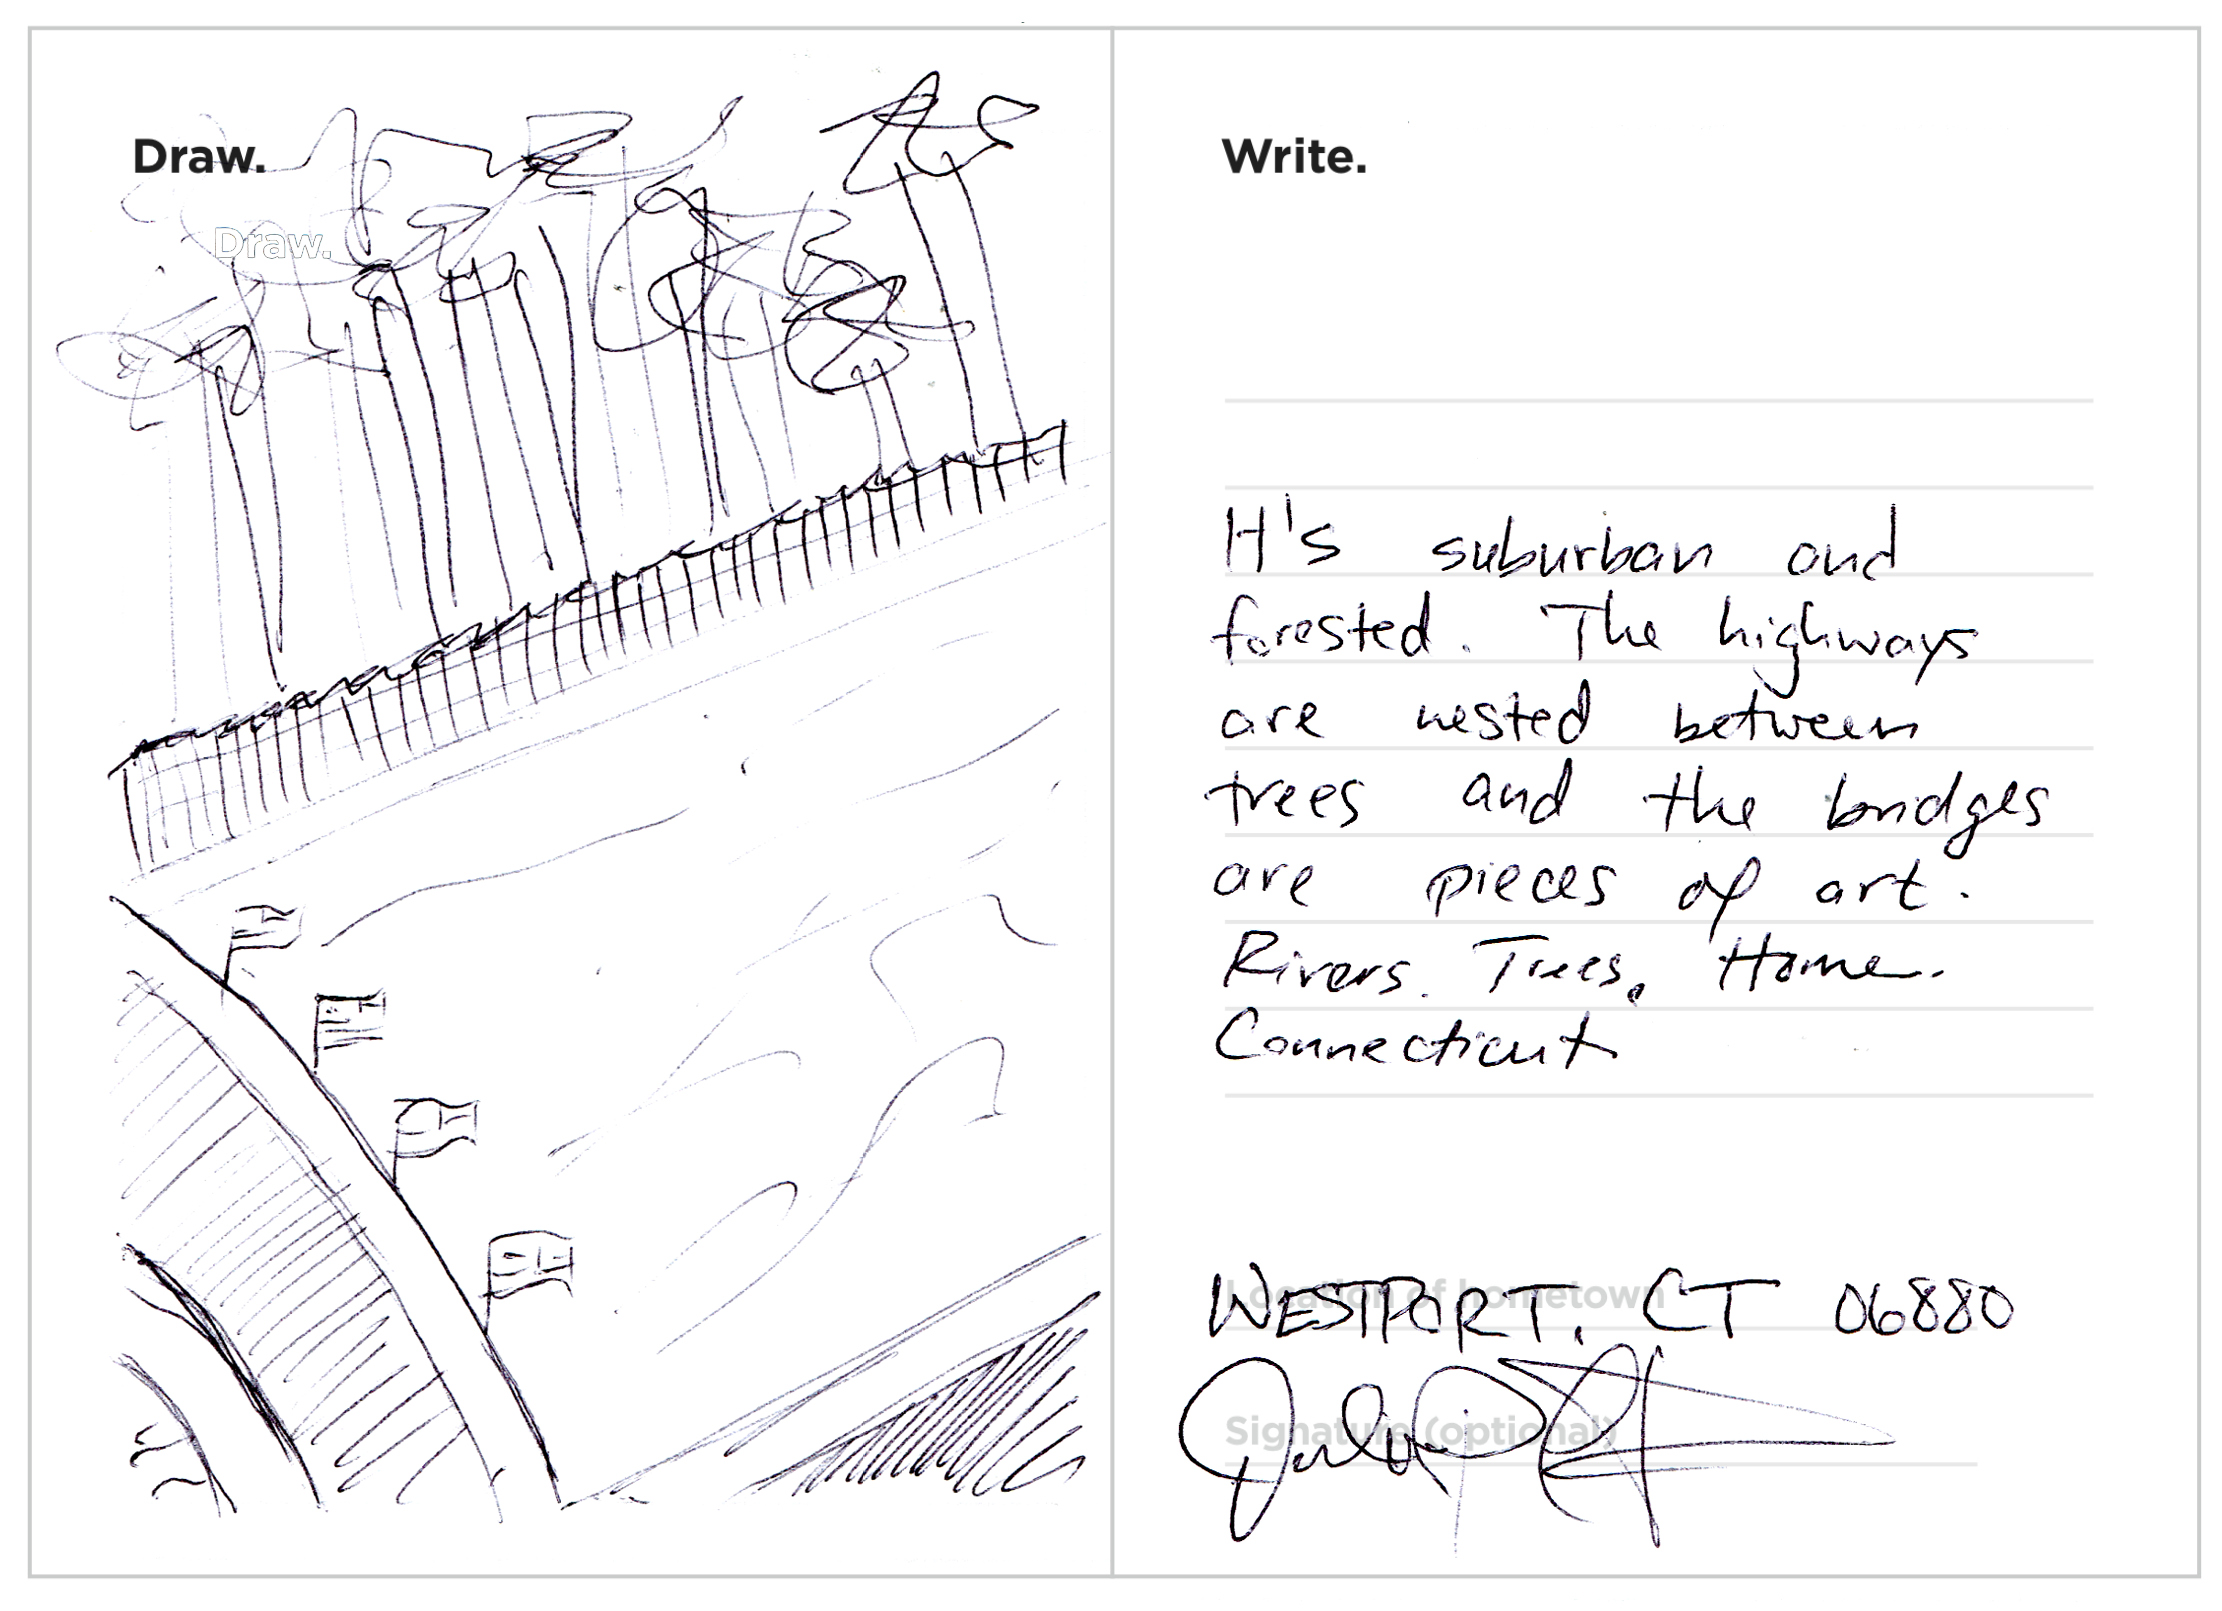 Draw.
Draw.
Write.
It's suburban and
forested. The highways
are nested between
trees and the bridges
are pieces of art.
Rivers. Trees. Home.
Connecticut
Location of hometown
WESTPORT, CT 06880
Signature (optional)